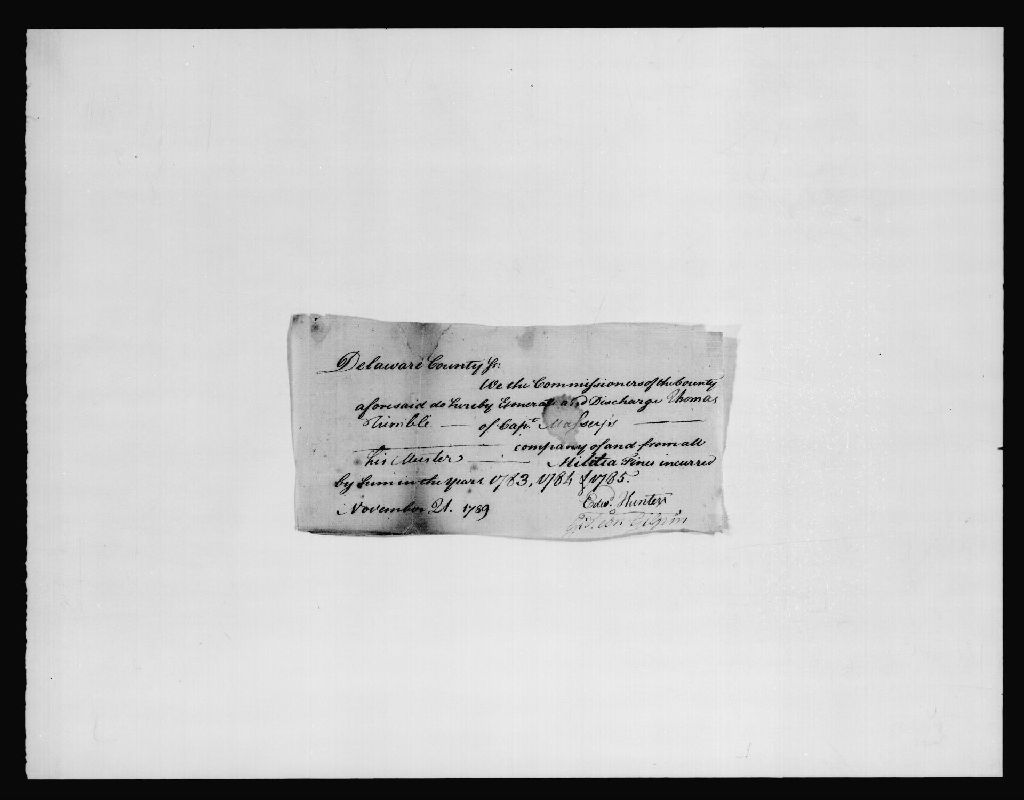 Delaware County Ss:
We the Commissioners of the County
aforesaid do hereby Exonerate and Discharge Thomas
Trimble — of Capt. Massey's —
— company of and from all
his Muster — Militia Fines incurred
by him in the years 1783, 1784 & 1785.
November 21. 1789 Edwd. Hunter